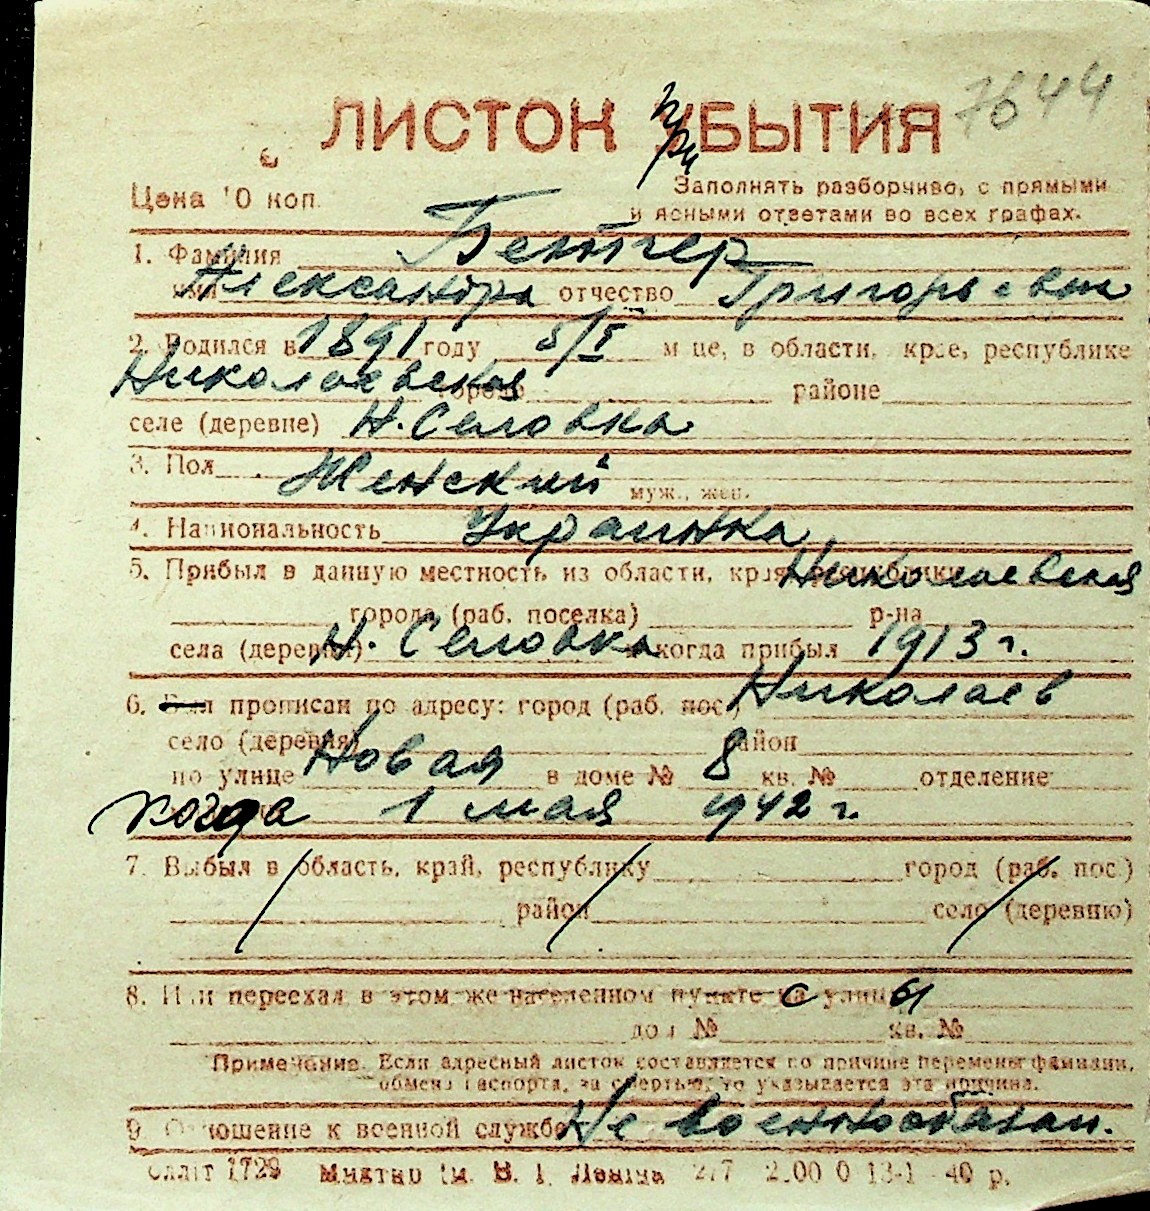 7644
ЛИСТОК УБЫТИЯ
при
Цена 10 коп.
Заполнять разборчиво, с прямыми
и ясными ответами во всех графах.
1. Фамилия Бентгер
имя Александра отчество Григорьевна
2. Родился в 1891 году 5/I м-це, в области, крае, республике
Николаевская городе районе
селе (деревне) Н. Селовка
3. Пол Женский муж., жен.
4. Национальность Украинка
5. Прибыл в данную местность из области, края, республики Николаевская
города (раб. поселка) р-на
села (деревни) Н. Селовка когда прибыл 1913 г.
6. Был прописан по адресу: город (раб. пос.) Николаев
село (деревня) район
по улице Новая в доме № 8 кв. № отделение
когда 1 мая 1942 г.
7. Выбыл в область, край, республику город (раб. пос.)
район село (деревню)
8. Или переехал в этом же населенном пункте на с улицы
дом № кв. №
Примечание. Если адресный листок составляется по причине перемены фамилии,
обмена паспорта, за смертью, то указывается эта причина.
9. Отношение к военной службе Не военнообязан.
1729 В. И. Ленина 40 р.